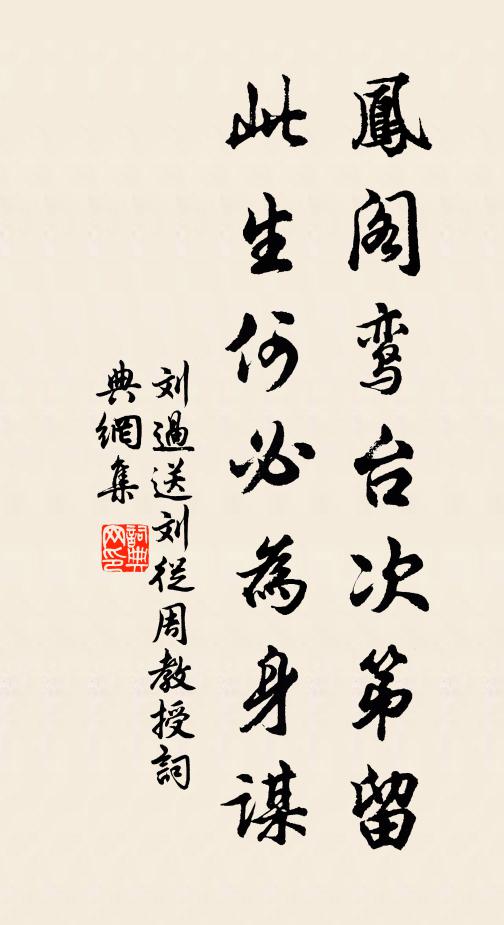 鳳閣鸾台次第留
此生何必為身謀
刘過送刘從周教授詞
典網集
詞典網印